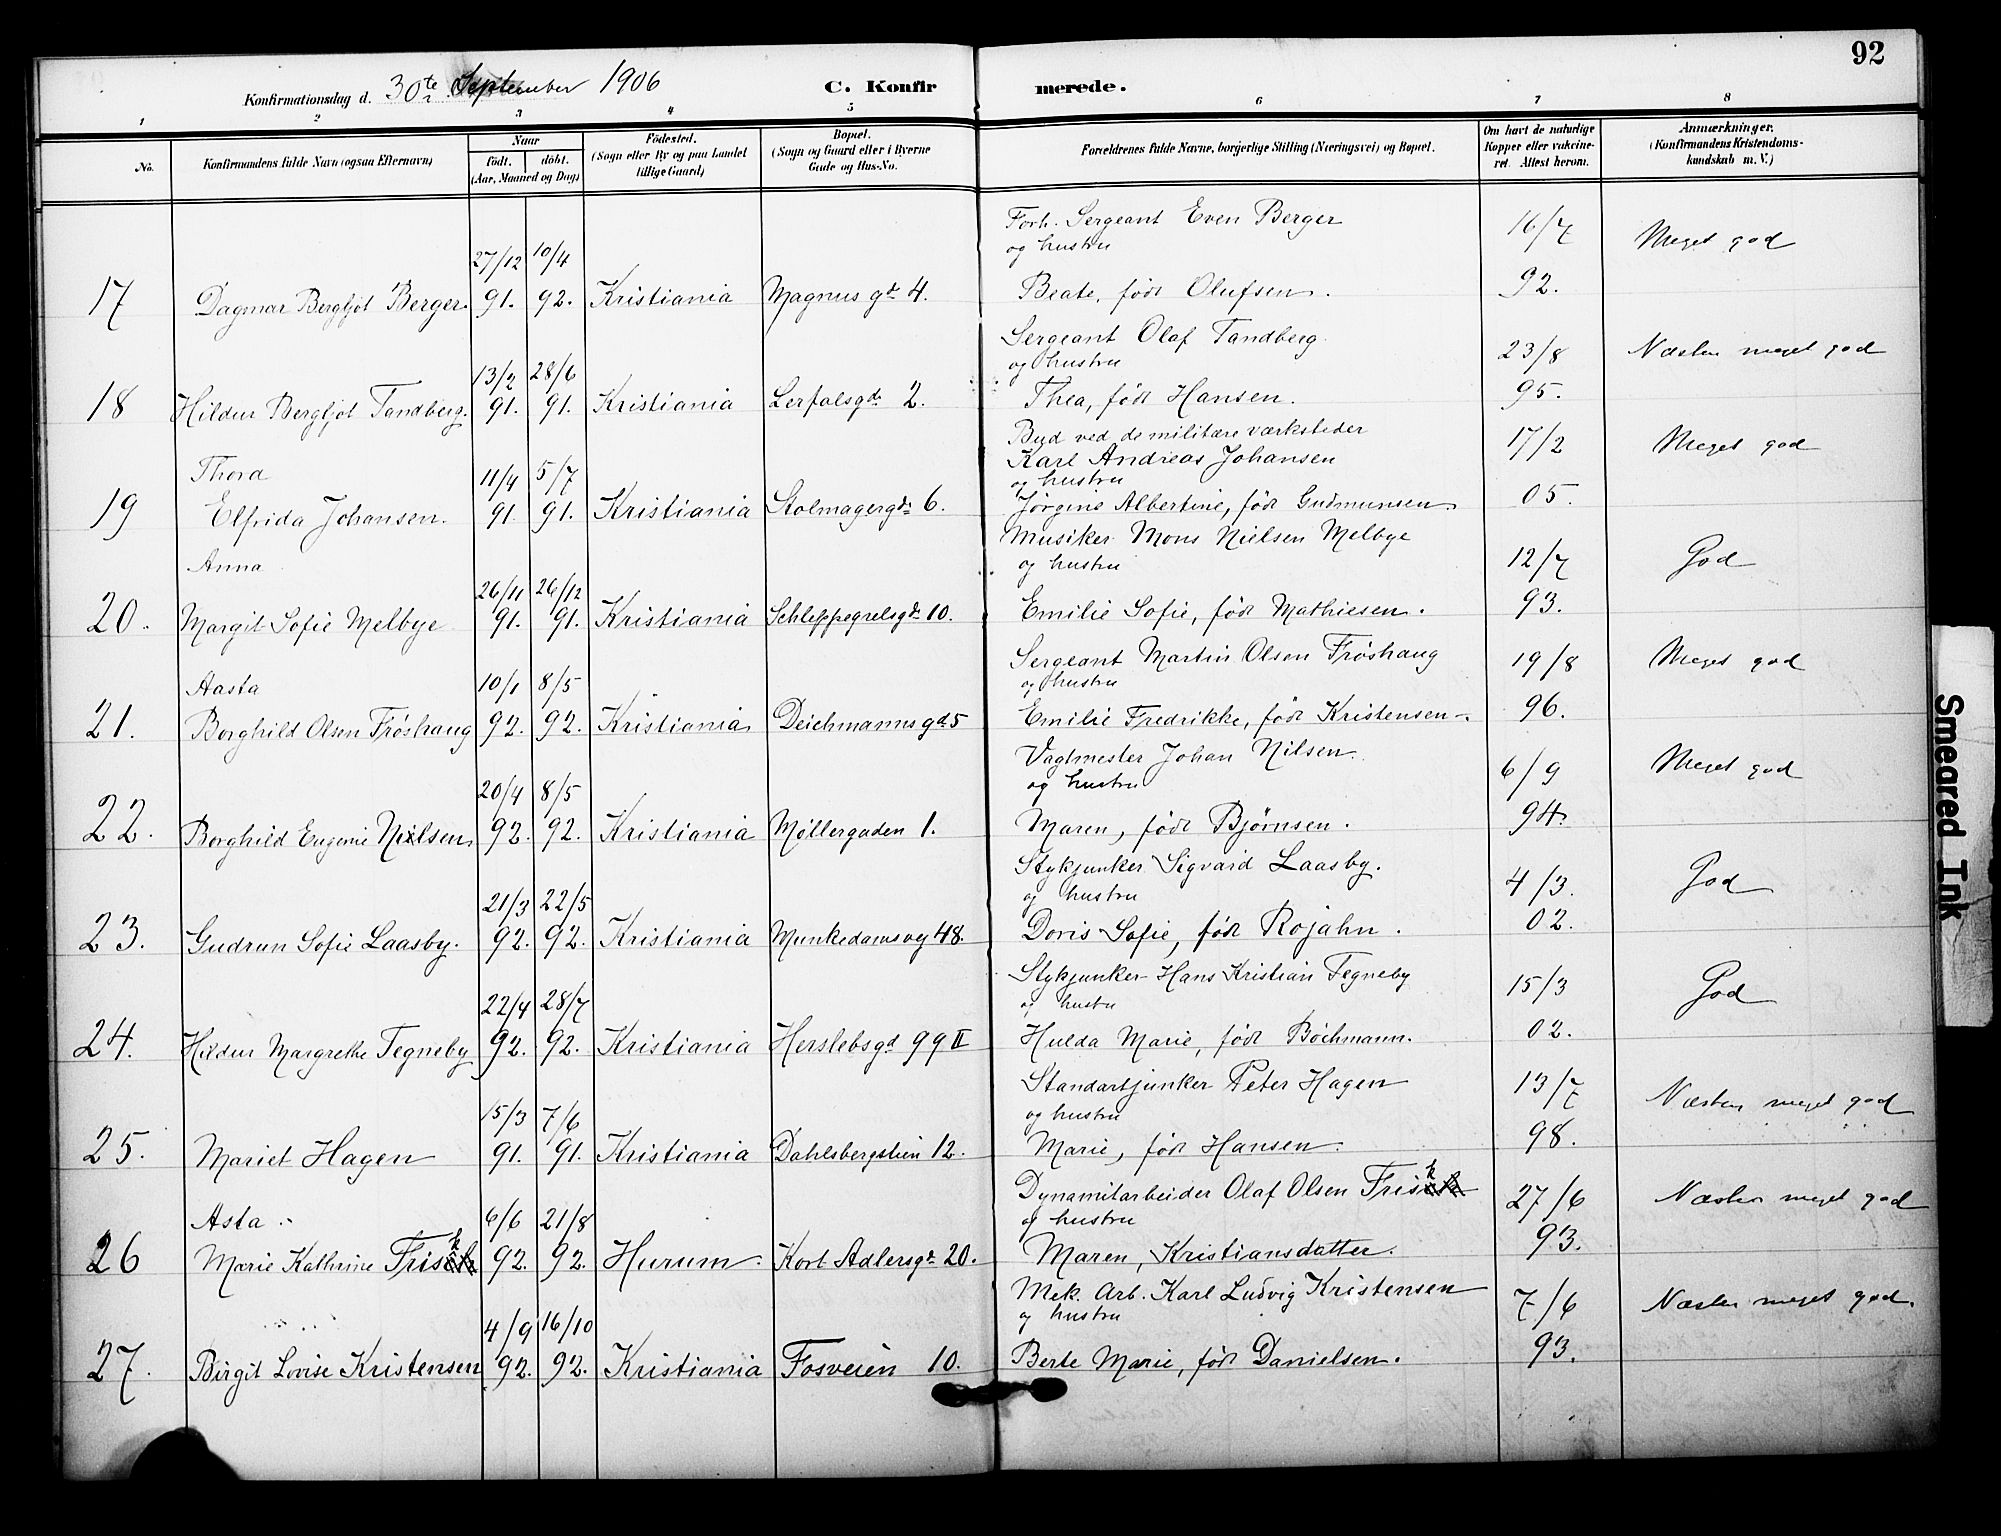 92
Konfirmationsdag d. 30te September 1906 C. Konfirmerede.
1 2 3 4 5 6 7 8
No.
Konfirmandens fulde Navn (ogsaa Efternavn)
Naar
født. døbt.
(Aar, Maaned og Dag)
Fødested.
(Sogn eller By og paa Landet
tillige Gaard)
Bopæl.
(Sogn og Gaard eller i Byerne
Gade og Hus-No.
Forældrenes fulde Navne, borgerlige Stilling (Næringsvei) og Bopæl.
Om havt de naturlige
Kopper eller vakcine-
ret. Attest herom.
Anmærkninger.
(Konfirmandens Kristendoms-
kundskab m. V.)
Forh. Sergeant Even Berger 16/7 Meget god
og hustru
27/12 10/4
17 Dagmar Bergljot Berger 91. 92. Kristiania Magnus gt. 4. Beate, født Olufsen. 92.
Sergeant Olaf Tandberg 23/8 Næsten meget god
og hustru
13/2 28/6
18 Hildur Bergljot Tandberg. 91. 91. Kristiania Lerfalsgd. 2. Thea, født Hansen. 95.
Bud ved de militære værksteder 17/2 Meget god
Thora 11/4 5/7 Karl Andreas Johansen
og hustru
19 Elfrida Johansen. 91. 91. Kristiania Stolmagergd. 6. Jørgine Albertine, født Gudmunsen. 05.
Musiker Mons Nielsen Melbye
Anna 26/11 26/12 og hustru 12/7 God
20. Margit Sofie Melbye 91. 91. Kristiania Schleppegrelsgt. 10. Emilie Sofie, født Mathiesen. 93.
Sergeant Martin Olsen Frøshaug 19/8 Meget god
Aasta 10/1 8/5 og hustru
21. Borghild Olsen Frøshaug 92. 92. Kristiania Deichmanns gd. 5 Emilie Fredrikke, født Kristensen. 96.
Vagtmester Johan Nilsen. 6/9 Meget god
20/4 8/5 og hustru
22. Borghild Eugenie Nielsen 92. 92. Kristiania Møllergaden 1. Maren, født Bjørnsen. 94.
Stykjunker Sigvard Laasby. 4/3. God
21/3 22/5 og hustru
23. Gudrun Sofie Laasby. 92. 92. Kristiania Munkedamsvej 48. Doris Sofie, født Rojahn. 02.
Stykjunker Hans Kristian Tegneby 15/3 God
22/4 28/7 og hustru
24. Hildur Margrethe Tegneby 92. 92. Kristiania Herslebsgd 99 II Hulda Marie, født Bøchmann. 02.
Standartjunker Peter Hagen 13/7 Næsten meget god
15/3 7/6 og hustru
25. Mariet Hagen 91. 91. Kristiania Dahlsbergstien 12. Marie, født Hansen. 98.
Dynamitarbeider Olaf Olsen Frisk 27/6 Næsten meget god
Asta 6/6 21/8 og hustru
26 Marie Kathrine Frisk 92. 92. Hurum. Kort Adlersgt. 20. Maren, Kristiansdatter. 93.
Mek. Arb. Karl Ludvig Kristensen 7/6 Næsten meget god.
4/9 16/10 og hustru
27. Birgit Lovise Kristensen 92. 92. Kristiania Fosveien 10. Berte Marie, født Danielsen. 93.
Smeared Ink